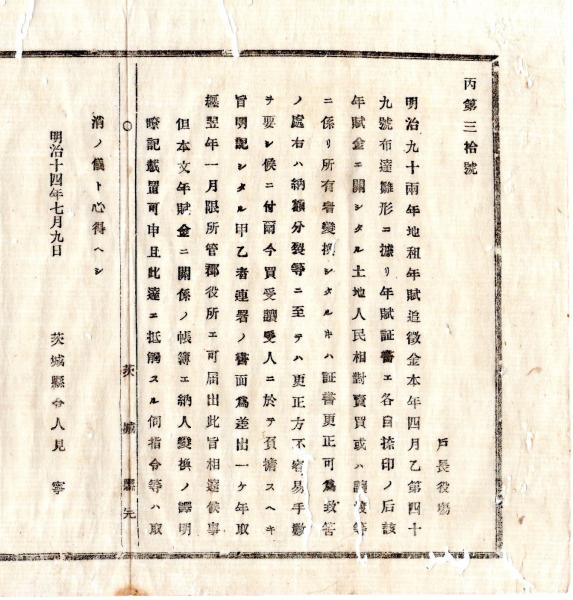 丙第三拾號
戸長役塲
明治九十兩年地租年賦追徵金本年四月乙第四十
九號布達雛形ニ據リ年賦証書エ各自捺印ノ后該
年賦金エ關シタル土地人民相對賣買或ハ讓渡等
ニ係リ所有者變換シタルキハ証書更正可爲致筈
ノ處右ハ納額分裂等ニ至テハ更正方不容易手數
ヲ要シ候ニ付爾今買受讓受人ニ於テ負擔スヘキ
旨明記シタル甲乙者連署ノ書面爲差出一ケ年取
纒翌年一月限所管郡役所エ可届出此旨相達候事
但本文年賦金ニ關係ノ帳簿エ納人變換ノ譯明
瞭記載留可申且此達ニ抵觸スル伺指令等ハ取
茨城縣元
消ノ儀ト心得ヘシ
明治十四年七月九日
茨城縣令人見寧